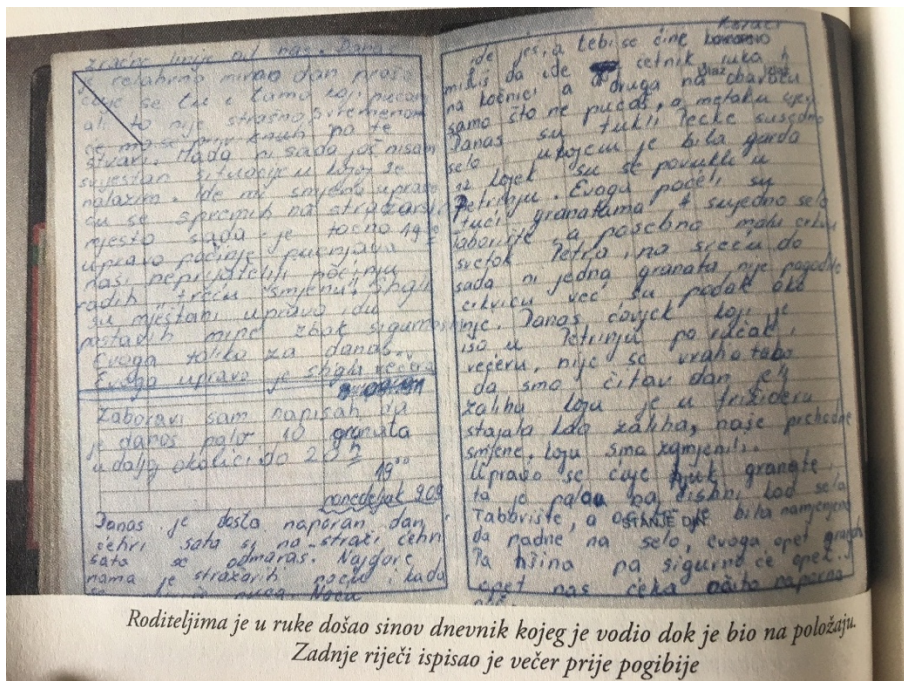 zračne linije od nas. Danas
je relativno miran dan prošo
čuje se tu i tamo koji pucanj
ali to nije strašno, s vremenom
se
stvari. Mada ni sada još nisam
svjestan situacije u kojoj se
nalazim. Ide mi smjena upravo
ću se spremiti na stražarsko
mjesto sada je točno 19
upravo počinje pucnjava
naši neprijatelji počinju
raditi "treću smjenu". Stigli
su mještani upravo idu
postaviti mine zbak sigurnosti
Evoga toliko za danas.
Evoga upravo je stigla večera
Zaboravi sam napisati da
je danas palo 10 granata
u daljoj okolici do 20
19⁰⁰
ponedeljak 9.09
Danas je dosta naporan dan,
četiri sata si na straži četiri
sata se odmaraš. Najgore
nama je stražariti noću i kada
Koraci
ide jež, a tebi se čine
misliš da ide četnik ruka ti
na kočnici a druga na obaraču
samo što ne pucaš, a metak u cjevi
Danas su tukli Pecke susjedno
selo u kojem je bila garda
iz kojek su se povukli u
Petrinju. Evoga počeli su
tući granatama i susjedno selo
Taborište a posebno malu crkvu
svetog Petra, na sreću do
sada ni jedna granata nije pogodila
crkvicu već su padale oko
nje. Danas čovjek koji je
išo u Petrinju po ručak i
večeru, nije se vratio tako
da smo čitav dan jeli
zalihu koju je u frižideru
stajala kao zaliha, naše prethodne
smjene, koju smo zamjenili.
Upravo se čuje huk granate,
ta je pala na kod sela
Taborište, a STANJE DIN. je bila namjenjena
da padne na selo, evoga opet granata
Pa tišina pa sigurno će opet.
opet nas čeka naporna
Roditeljima je u ruke došao sinov dnevnik kojeg je vodio dok je bio na položaju.
Zadnje riječi ispisao je večer prije pogibije